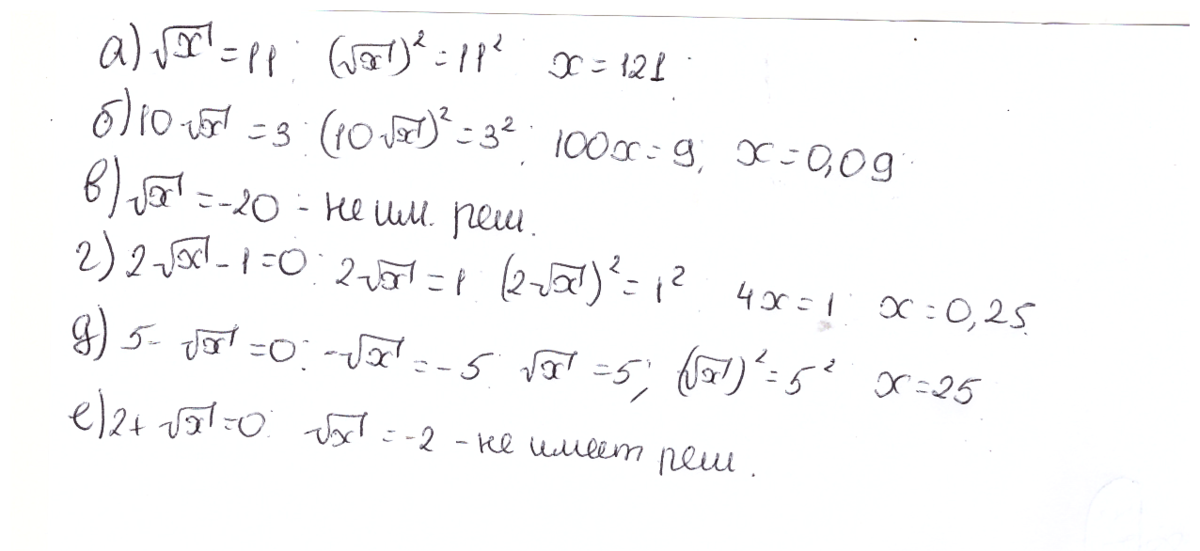 а) √x = 11; (√x)² = 11² x = 121.
б) 10√x = 3; (10√x)² = 3²; 100x = 9; x = 0,09.
в) √x = -20 - не им. реш.
г) 2√x - 1 = 0; 2√x = 1; (2√x)² = 1² 4x = 1; x = 0,25.
д) 5 - √x = 0; -√x = -5; √x = 5; (√x)² = 5² x = 25
е) 2 + √x = 0; √x = -2 - не имеет реш.